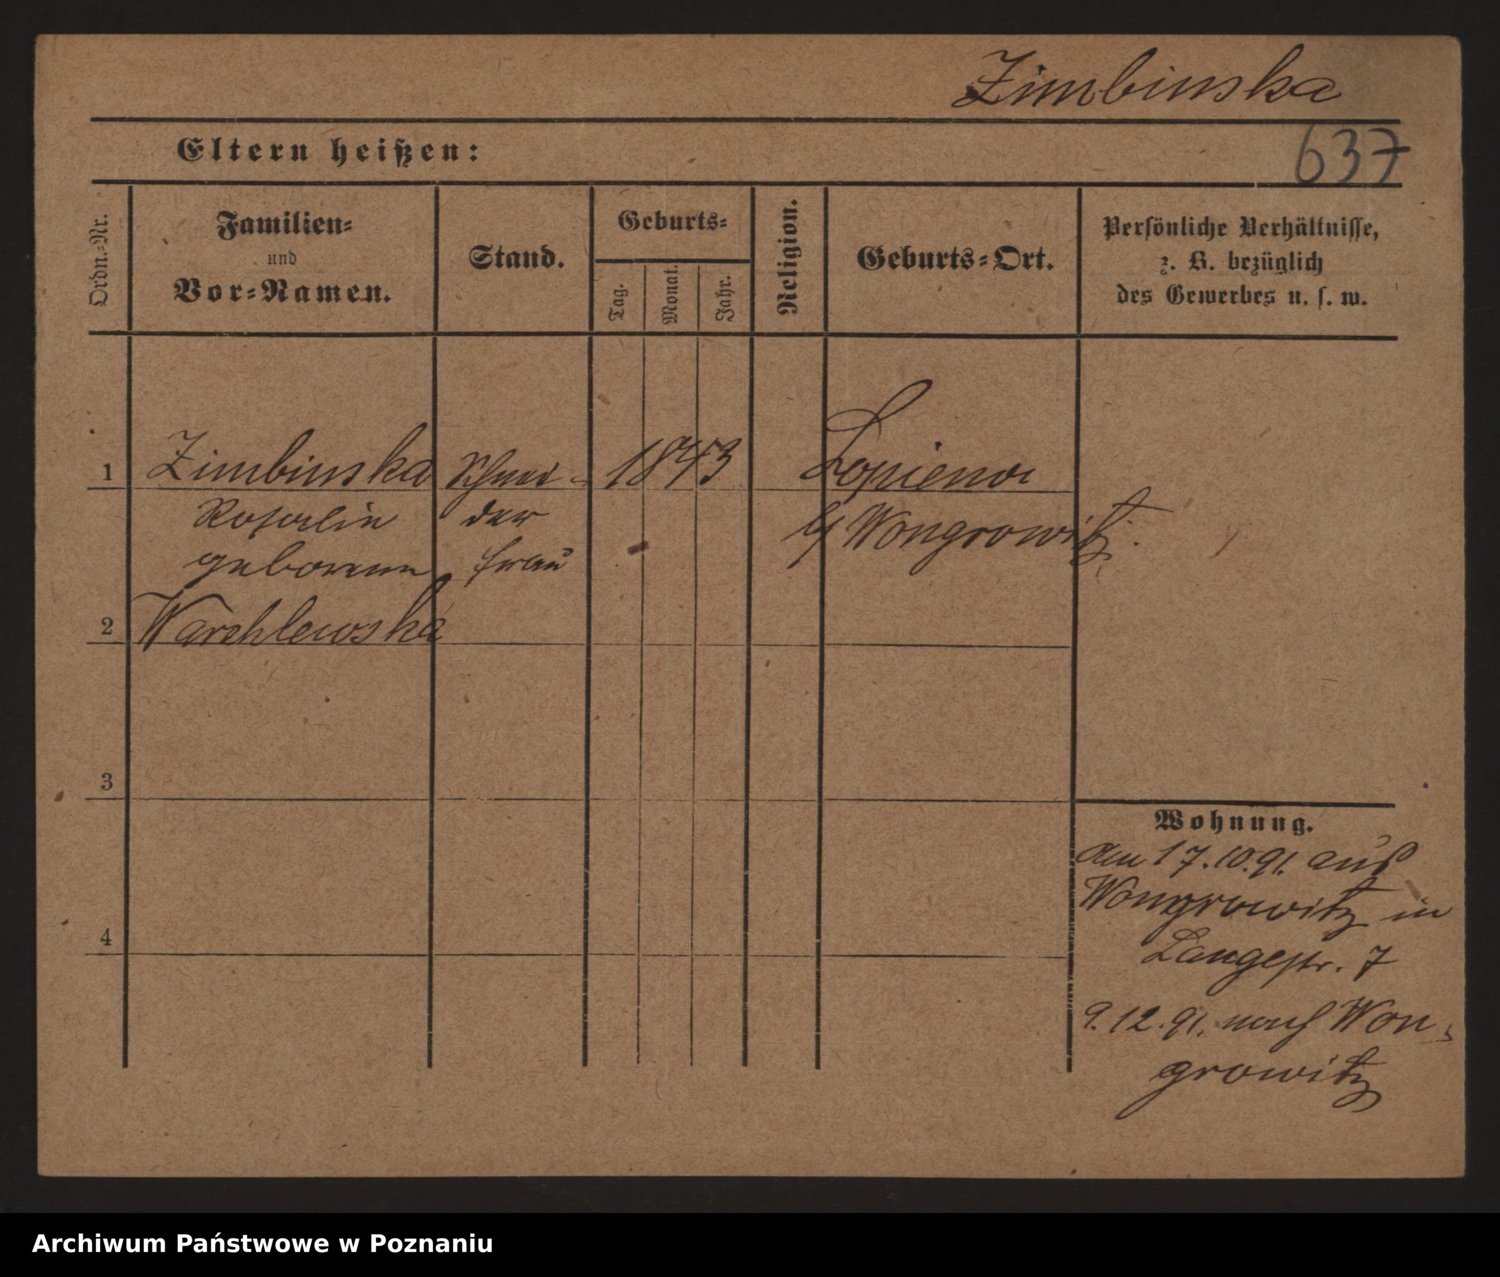 Zimbinska
637
Eltern heißen:
Ordn.-Nr.
Familien-
und
Vor-Namen.
Stand.
Geburts-
Tag.
Monat.
Jahr.
Religion.
Geburts-Ort.
Persönliche Verhältnisse,
z. B. bezüglich
des Gewerbes u. s. w.
1
Zimbinska
Schnei-
1843
Lopienno
Rosalie
der
b/ Wongrowitz.
geborene
frau
2
Warzhlewska
3
Wohnung.
Am 17.10.91. aus
Wongrowitz in
4
Langestr. 7
9.12.91. nach Won-
growitz
Archiwum Państwowe w Poznaniu